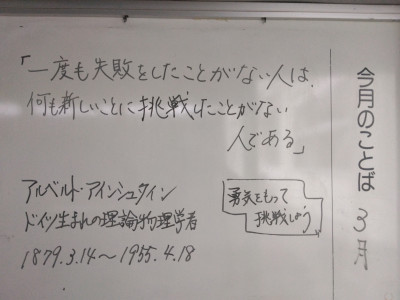 今月のことば 3月
「一度も失敗をしたことがない人は、
何も新しいことに挑戦したことがない
人である」
アルベルト・アインシュタイン
ドイツ生まれの理論物理学者
1879.3.14〜1955.4.18
勇気をもって
挑戦しよう